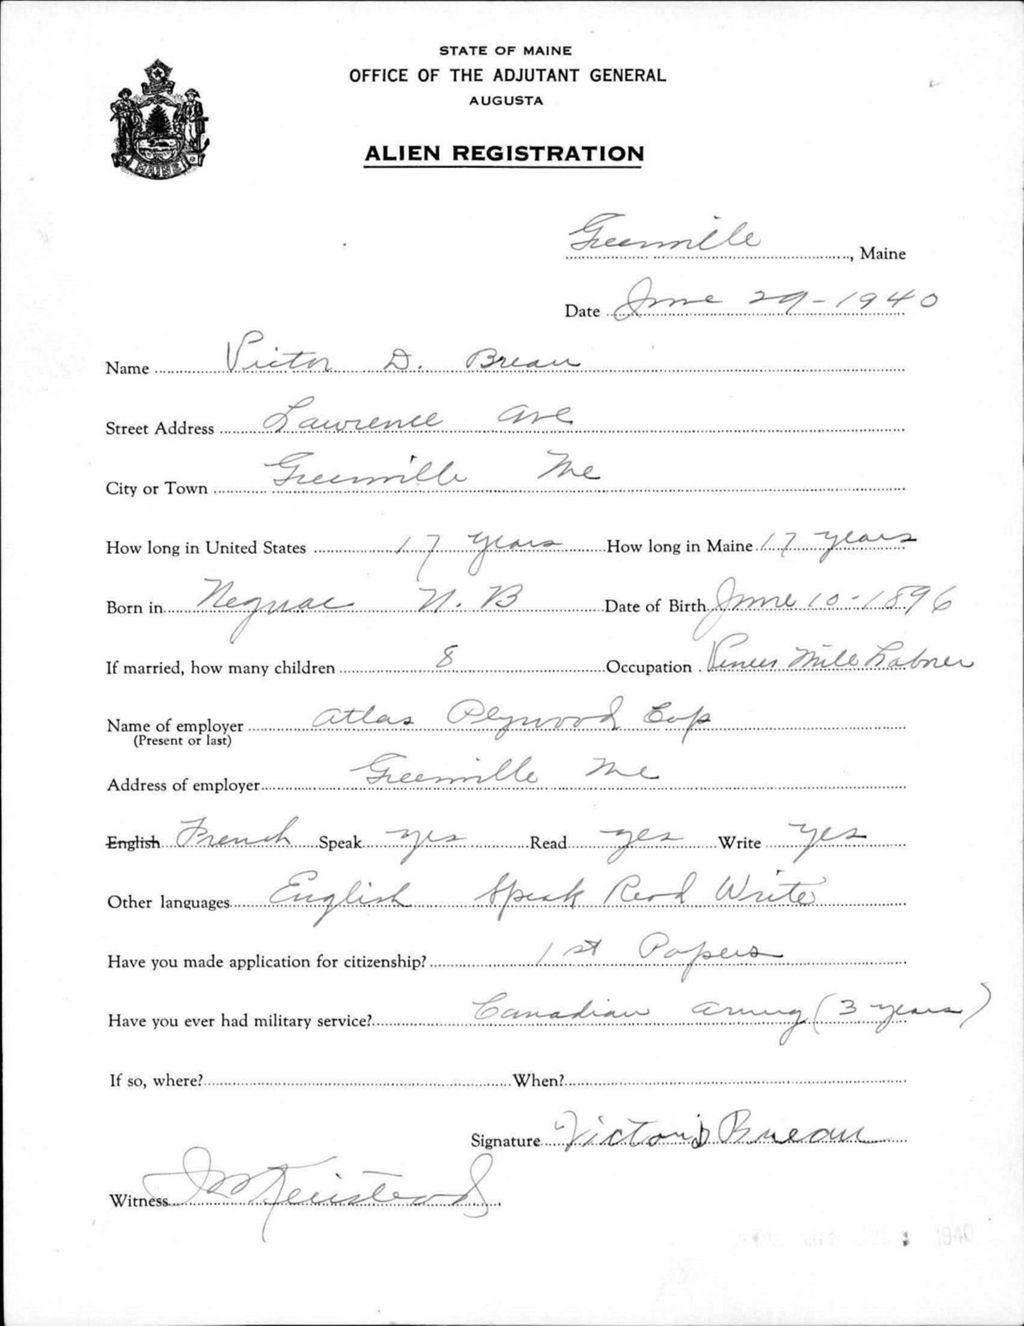 STATE OF MAINE
OFFICE OF THE ADJUTANT GENERAL
AUGUSTA
ALIEN REGISTRATION
MAINE
Greenville, Maine
Date June 29-1940
Name Victor D. Breau
Street Address Lawrence Ave
City or Town Greenville Me
How long in United States 17 years How long in Maine 17 years
Born in Neguac N. B Date of Birth June 10-1896
If married, how many children 8 Occupation Veneer Mill Laborer
Name of employer Atlas Plywood Corp
(Present or last)
Address of employer Greenville Me
English French Speak yes Read yes Write yes
Other languages English Speak Read Write
Have you made application for citizenship? 1st Papers
Have you ever had military service? Canadian Army (3 years)
If so, where? When?
Signature Victor D Breau
Witness
1940